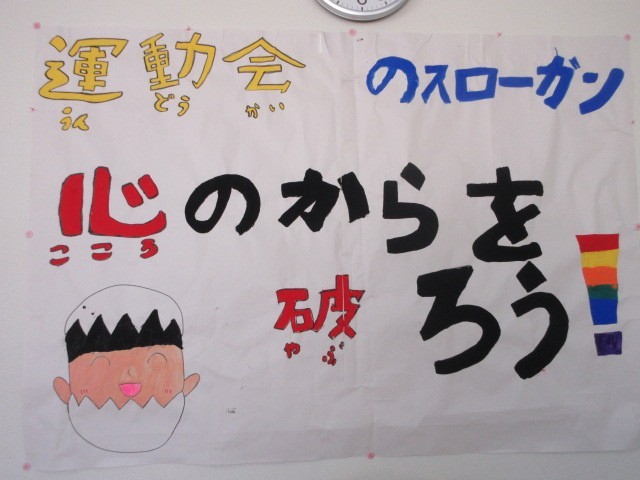 運動会のスローガン
うん どう かい
心のからを
こころ
破ろう!
やぶ